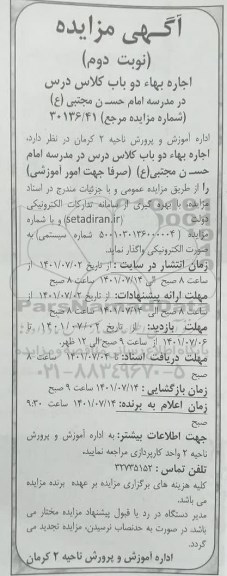 آگهی مزایده
(نوبت دوم)
اجاره بهاء دو باب کلاس درس
در مدرسه امام حسن مجتبی (ع)
(شماره مزایده مرجع) ۳۰۱۳۶/۴۱
اداره آموزش و پرورش ناحیه ۲ کرمان در نظر دارد،
اجاره بهاء دو باب کلاس درس در مدرسه امام
حسن مجتبی(ع) (صرفا جهت امور آموزشی)
را از طریق مزایده عمومی و با جزئیات مندرج در اسناد
مزایده، با بهره گیری از سامانه تدارکات الکترونیکی
دولت (setadiran.ir) و با شماره
مزایده (شماره سیستمی) به
صورت الکترونیکی واگذار نماید.
زمان انتشار در سایت: از تاریخ ۱۴۰۱/۰۷/۰۲ از
ساعت ۸ صبح الی ۱۴۰۱/۰۷/۱۴ ساعت ۸ صبح
مهلت ارائه پیشنهادات: از تاریخ ۱۴۰۱/۰۷/۰۲ از
ساعت ۸ صبح الی ۱۴۰۱/۰۷/۱۴ ساعت ۸ صبح
مهلت بازدید: از تاریخ ۱۴۰۱/۰۷/۰۲ تا
۱۴۰۱/۰۷/۰۶ از ساعت ۹ صبح الی ۱۲ ظهر.
مهلت دریافت اسناد: تا ساعت ۸
صبح
زمان بازگشایی: ۱۴۰۱/۰۷/۱۴ ساعت ۹ صبح
زمان اعلام به برنده: ۱۴۰۱/۰۷/۱۴ ساعت ۹:۳۰
صبح
جهت اطلاعات بیشتر: به اداره آموزش و پرورش
ناحیه ۲ واحد کارپردازی مراجعه نمایید،
تلفن تماس: ۳۲۷۳۵۱۵۲
کلیه هزینه های برگزاری مزایده بر عهده برنده مزایده
می باشد.
مدیر دستگاه در رد یا قبول پیشنهاد مزایده مختار می
باشد. در صورت به حدنصاب نرسیدن، مزایده تجدید می
گردد.
اداره آموزش و پرورش ناحیه ۲ کرمان
۰۲۱-۸۸۳۴۹۶۷۰-۵